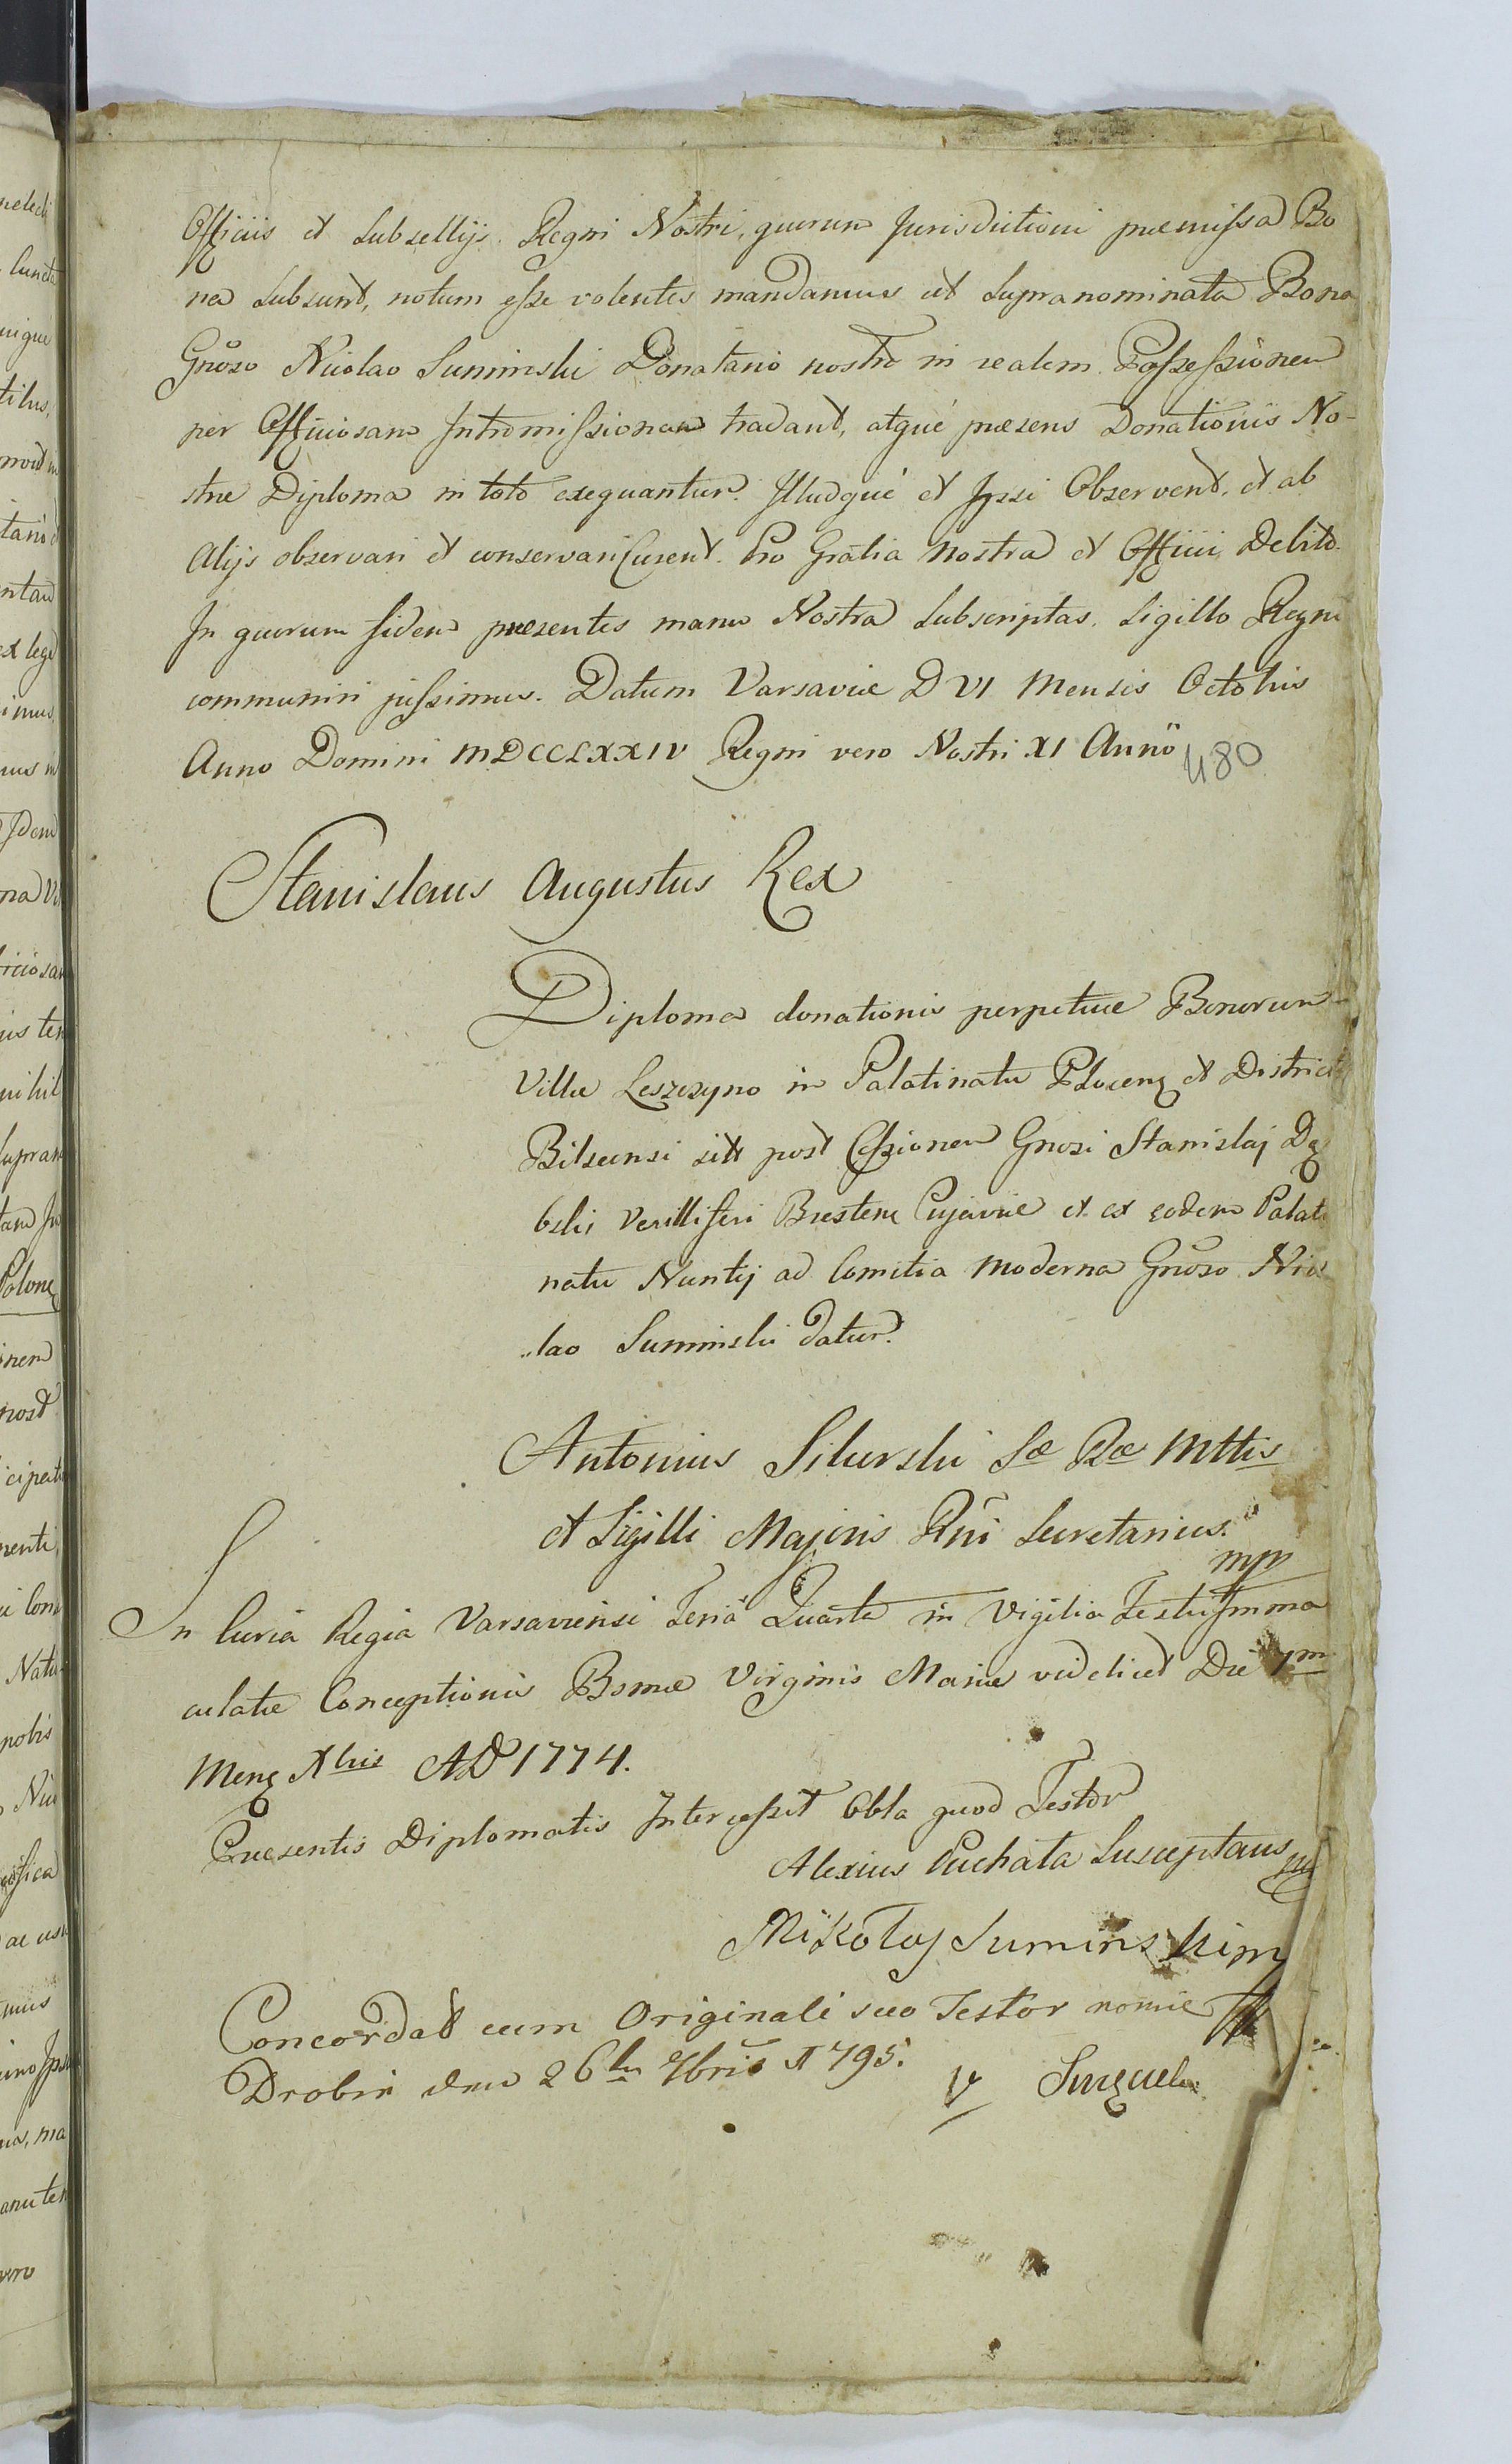 Officiis et Subsellijs Regni Nostri, quorum Jurisdictioni præmissa Bo
na Subsunt, notum esse volentes mandamus ut Supranominata Bona
Gnoso Nicolao Suminski Donatario nostro in realem Possessionem
per Officiosam Intromissionem tradant, atque præsens Donationis No-
stræ Diploma in toto exequantur. Illudque et Ipsi Observent, et ab
Alijs observari et conservari Curent. Pro Gratia Nostra et Officii Debito.
In quorum fidem præsentes manu Nostra Subscriptas, Sigillo Regni
communiri jussimus. Datum Varsaviæ D VI Mensis Octobris
Anno Domini MDCCLXXIV Regni vero Nostri XI Anno
480
Stanislaus Augustus Rex
Diploma donationis perpetuæ Bonorum
Villæ Leszczyno in Palatinatu Plocens et District
Bilscensi sitt post Cessionem Gnosi Stanislaj Dę
bski Vexilliferi Brestens Cujaviæ et ex eodem Palati
natu Nuntij ad Comitia moderna Gnoso Nico
lao Suminski datur.
Antonius Sikurski Sæ Ræ Mttis
et Sigilli Majoris Rni Secretarius.
mp
In Curia Regia Varsaviensi Feria Quarta in Vigilia Festi Imma
culatæ Conceptionis Bsmæ Virginis Mariæ videlicet Die 7ma
Mens Xbris AD 1774.
Præsentis Diplomatis Intercessit Obla quod Testor
Alexius Puchała Susceptans
Mikołaj Suminski mp
Concordat cum Originali suo Testor nomie
Drobin den 26ten 7bris 1795.